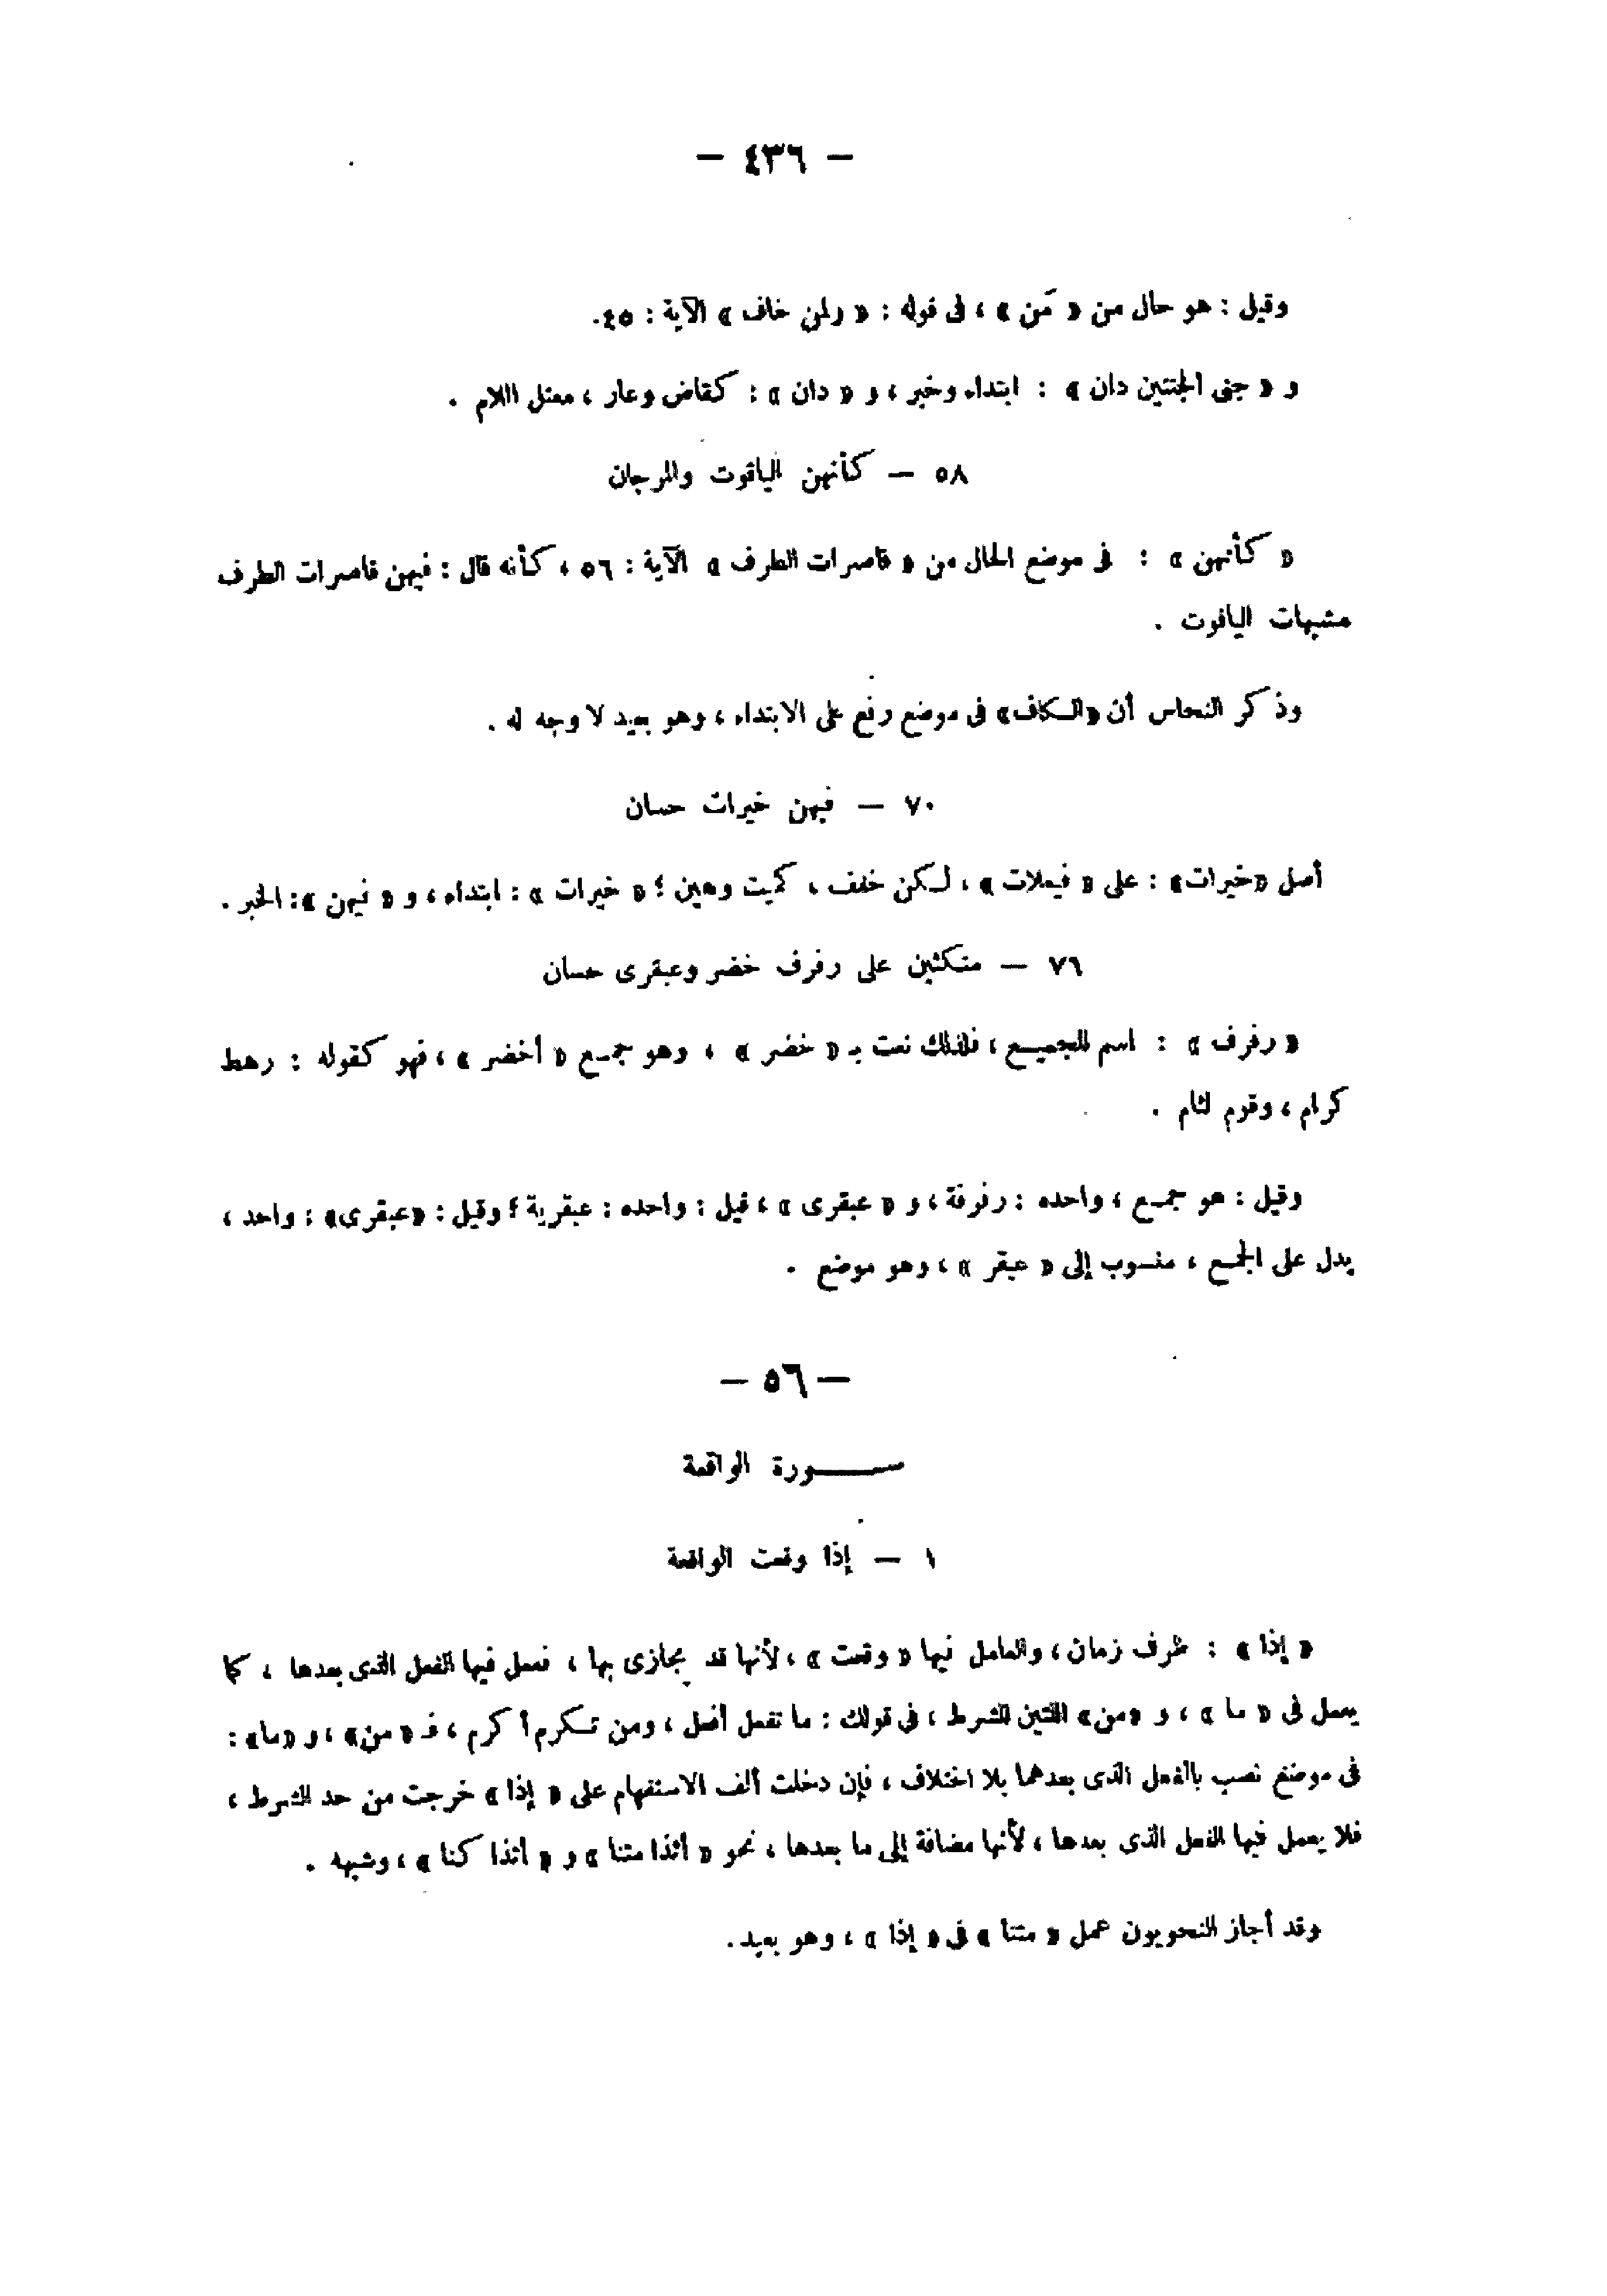 — ٤٣٦ —
وقيل : هو حال من « مَن » ، فى قوله : « ولمن خاف » الآية : ٤٥.
و « جنى الجنتين دان » : ابتداء وخبر ، و « دان » : كقاض وعار ، معتل اللام .
٥٨ — كأنهن الياقوت والمرجان
« كأنهن » : فى موضع الحال من « قاصرات الطرف » الآية : ٥٦ ، كأنه قال : فيهن قاصرات الطرف
مشبهات الياقوت .
وذكر النحاس أن «الكاف» فى موضع رفع على الابتداء ، وهو بعيد لا وجه له .
٧٠ — فيهن خيرات حسان
أصل «خيرات» : على « فيعلات » ، لكن خفف ، كميت وهين ؛ « خيرات » : ابتداء ، و « فيهن »: الخبر .
٧٦ — متكئين على رفرف خضر وعبقرى حسان
« رفرف » : اسم للجميع ، فلذلك نعت بـ « خضر » ، وهو جمع « أخضر » ، فهو كقوله : رهط
كرام ، وقوم لئام .
وقيل : هو جمع ، واحده : رفرفة ، و « عبقرى » ، قيل : واحده : عبقرية ؛ وقيل : «عبقرى» : واحد ،
يدل على الجمع ، منسوب إلى « عبقر » ، وهو موضع .
— ٥٦ —
سورة الواقعة
١ — إذا وقعت الواقعة
« إذا » : ظرف زمان ، والعامل فيها « وقعت » ، لأنها قد يجازى بها ، فعمل فيها الفعل الذى بعدها ، كما
يعمل فى « ما » ، و «من» اللتين للشرط ، فى قولك : ما تفعل أفعل ، ومن تكرم أكرم ، فـ «من» ، و «ما» :
فى موضع نصب بالفعل الذى بعدهما بلا اختلاف ، فإن دخلت ألف الاستفهام على « إذا » خرجت من حد الشرط ،
فلا يعمل فيها الفعل الذى بعدها ، لأنها مضافة إلى ما بعدها ، نحو « أئذا متنا » و « أئذا كنا » ، وشبهه .
وقد أجاز النحويون عمل « متنا » فى « إذا » ، وهو بعيد .